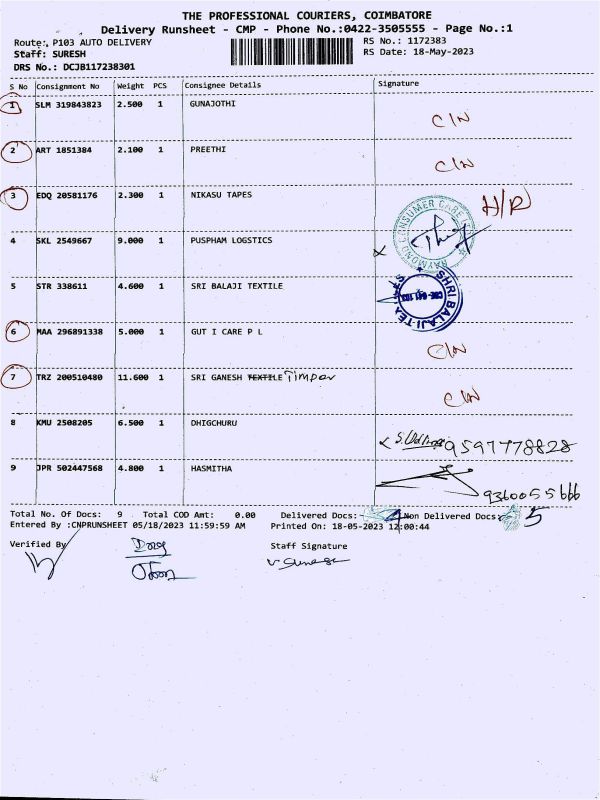 THE PROFESSIONAL COURIERS, COIMBATORE
Delivery Runsheet - CMP - Phone No.:0422-3505555 - Page No.:1
Route: P103 AUTO DELIVERY
RS No.: 1172383
Staff: SURESH
RS Date: 18-May-2023
DRS No.: DCJB117238301
S No Consignment No Weight PCS Consignee Details Signature
1 SLM 319843823 2.500 1 GUNAJOTHI
C/N
2 ART 1851384 2.100 1 PREETHI
C/N
3 EDQ 20581176 2.300 1 NIKASU TAPES
H/R
RAYMOND CONSUMER CARE
4 SKL 2549667 9.000 1 PUSPHAM LOGSTICS
5 STR 338611 4.600 1 SRI BALAJI TEXTILE
SHRI BALAJI TEX
6 MAA 296891338 5.000 1 GUT I CARE P L
C/N
7 TRZ 200510480 11.600 1 SRI GANESH TEXTILE Timper
C/N
8 KMU 2508205 6.500 1 DHIGCHURU
9597778828
9 JPR 502447568 4.800 1 HASMITHA
9360055666
Total No. Of Docs: 9 Total COD Amt: 0.00 Delivered Docs: 4 Non Delivered Docs: 5
Entered By :CNPRUNSHEET 05/18/2023 11:59:59 AM Printed On: 18-05-2023 12:00:44
Verified By
Staff Signature
V. Suresh